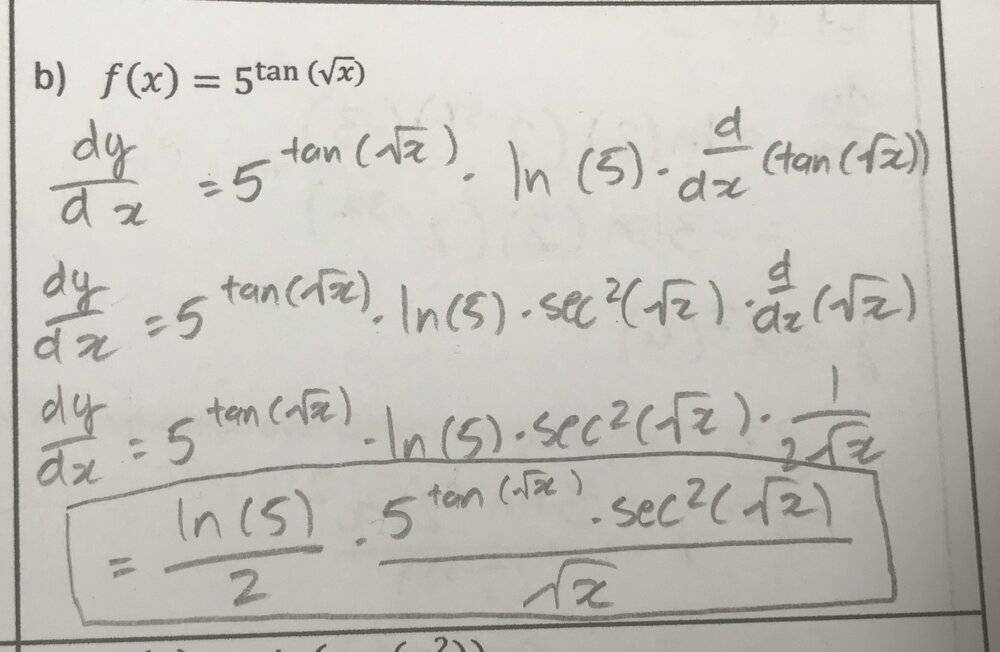 b) f(x) = 5^tan (√x)
dy/dx = 5^tan(√x) · ln (5) · d/dx (tan(√x))
dy/dx = 5^tan(√x) · ln(5) · sec²(√x) · d/dx (√x)
dy/dx = 5^tan(√x) · ln(5) · sec²(√x) · 1/2√x
= ln(5)/2 · 5^tan(√x) · sec²(√x)/√x